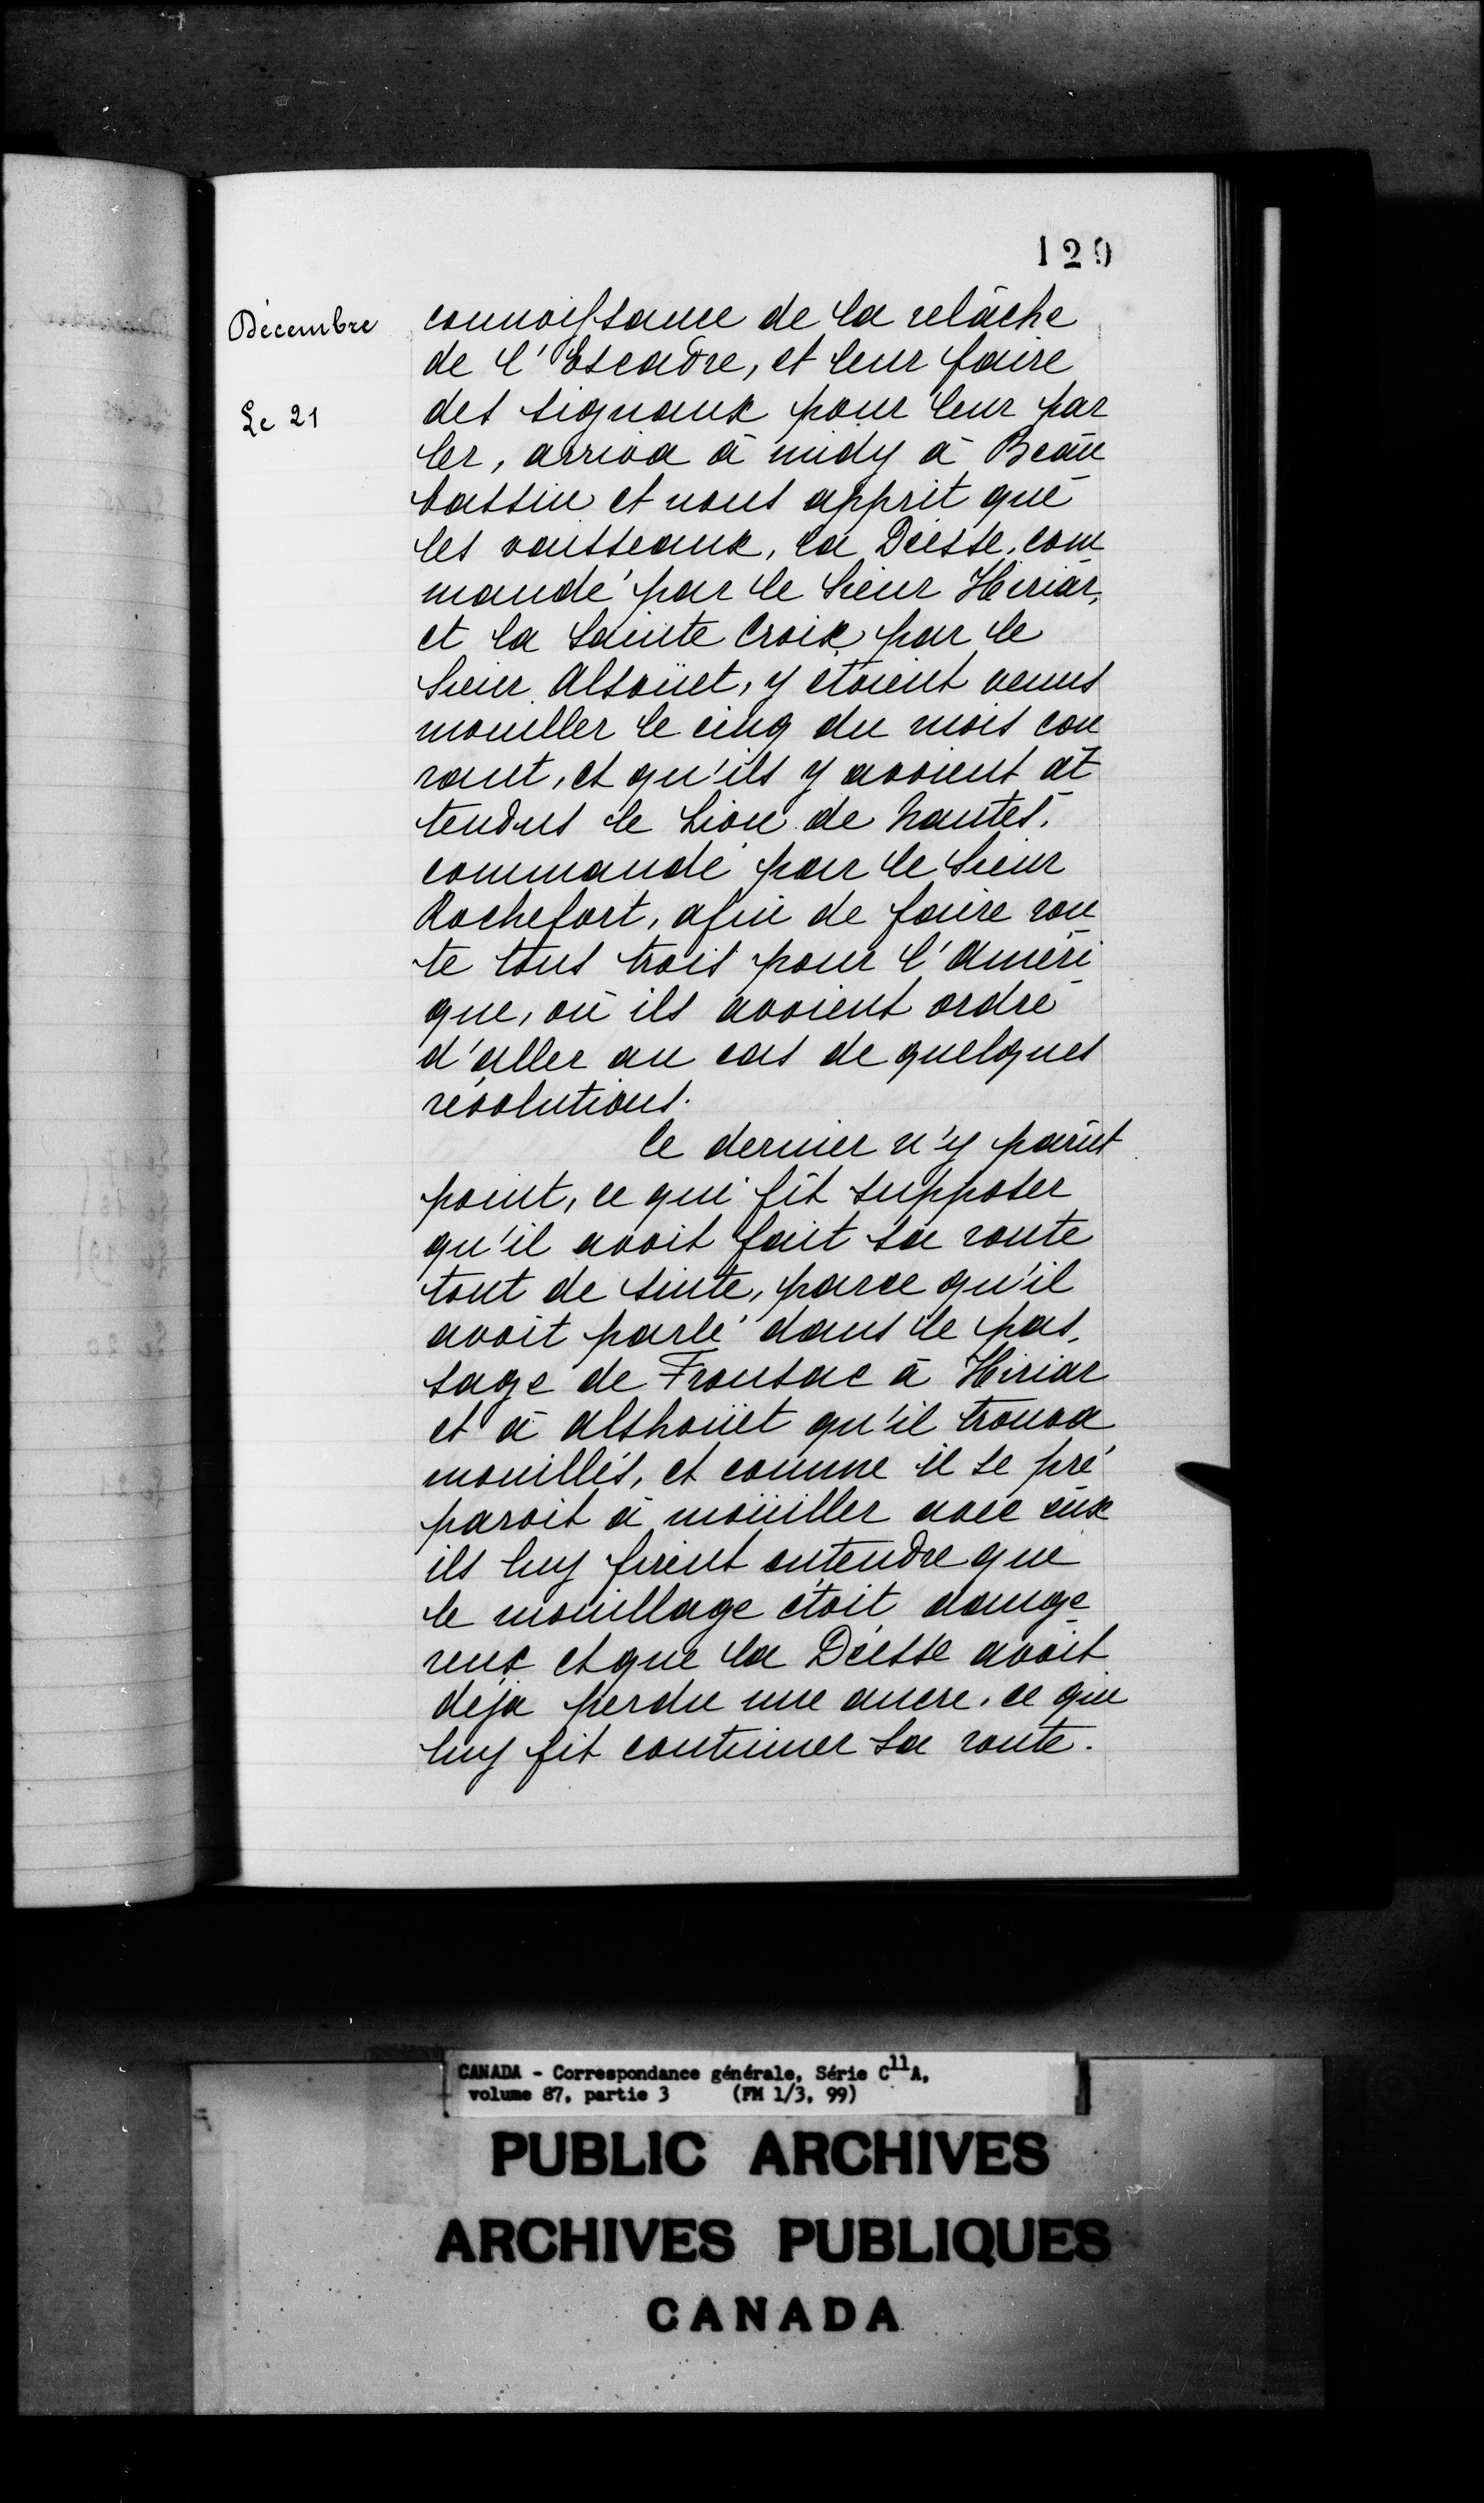 129
Décembre
connoissance de la relâche
de l'Escadre, et leur faire
Le 21
des signaux pour leur par
ler, arriva à midy à Beau
bassin et nous apprit que
les vaisseaux, la Déesse, com
mandé par le Sieur Hiriar,
et la Sainte Croix par le
Sieur Alsoüet, y étoient venus
mouiller le cinq du mois cou
rant, et qu'ils y avoient at
tendus le Lion de Nantes,
commandé par le Sieur
Rochefort, afin de faire rou
te tous trois pour l'Améri
que, où ils avoient ordre
d'aller au cas de quelques
révolutions.
Ce dernier n'y parût
point, ce qui fit supposer
qu'il avoit fait sa route
tout de suite, parce qu'il
avoit parlé dans le pas,
sage de Fronsac à Hiriar
et à Alshoüet qu'il trouva
mouillés, et comme il se pré
paroit à moüiller avec eux
ils luy firent entendre que
le mouillage étoit dange
reux et que la Déesse avoit
déja perdu une ancre, ce qui
luy fit continuer sa route.
CANADA - Correspondance générale, Série C11A,
volume 87, partie 3 (FM 1/3, 99)
PUBLIC ARCHIVES
ARCHIVES PUBLIQUES
CANADA